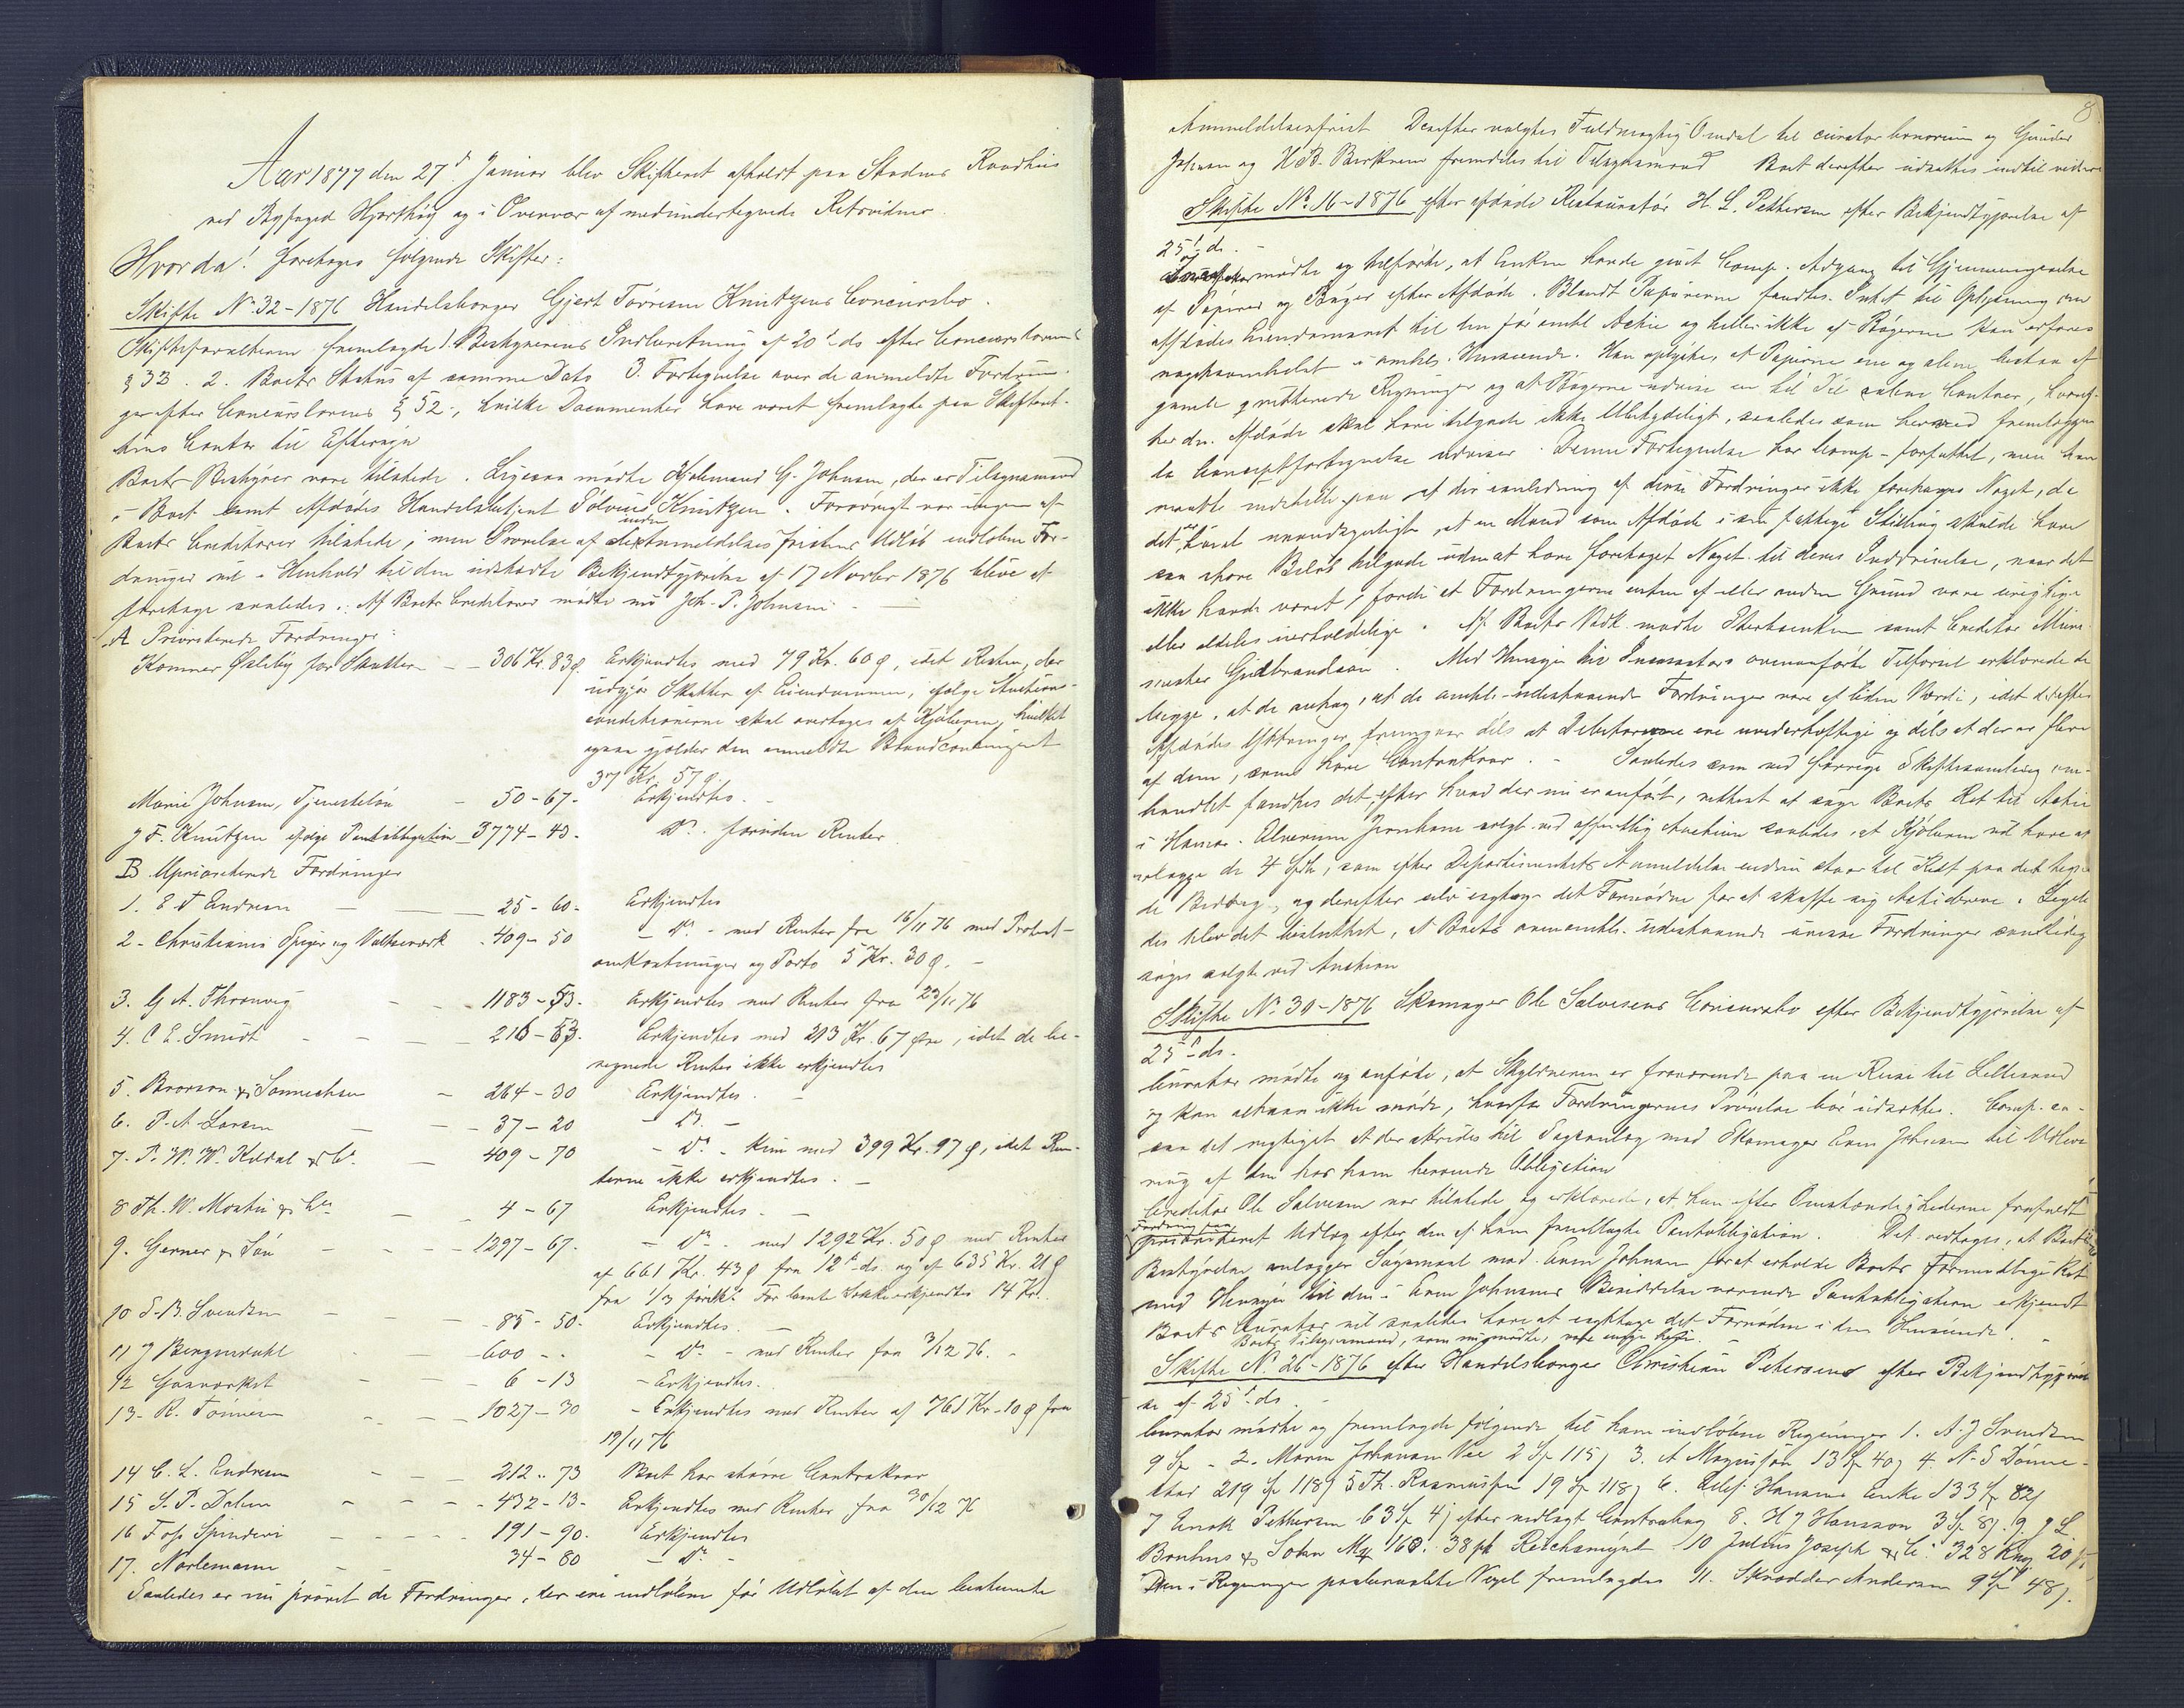 Aar 1877 den 27de Januar blev Skifteret afholdt paa Stadens Raadhus
ved Byfoged Hjorthøy og i Overvær af medundertegnede Retsvidner.
Hvorda! foretoges følgende Skifter:
Skifte No 32-1876 Handelsborger Gjert Tørresen Knutzens Concursbo.
Skifteforvalteren fremlagde 1. Bestyrerens Indberetning af 20de ds efter Concurslovens
§ 33. 2. Boets Status af samme Dato 3. Fortegnelse over de anmeldte Fordrin-
ger efter Concurslovens § 52, hvilke Documenter have været fremlagte paa Skifteret-
tens Contor til Eftersyn
Boets Bestyrer vare tilstede. Ligesaa mødte Kjøbmand G. Johnsen, der er Tilsynsmand
i Boet samt Afdødes Handelsbetjent Tolvius Knutzen. Forøvrigt var ingen af
Boets Creditorer tilstede, men Prøvelse af de inden Anmeldelsesfristens Udløb indløbne For-
dringer vil i Henhold til den udstædte Bekjendtgjørelse af 17 Novbr 1876 blive at
foretage saaledes: Af Boets Creditorer mødte nu Joh. P. Johnsen
A Prioriterede Fordringer:
Kæmner Qvleby for Skatter - - 306 Kr. 83 ø. Erkjendtes med 79 Kr. 60 ø, idet Resten, der
udgjør Skatter af Eiendommen, ifølge Auctions-
conditionerne skal overtages af Kjøberen, hvilket
ogsaa gjelder den anmeldte Brandcontingent
37 Kr. 57 ø.
Marie Johnsen, Tjenesteløn - 50-67- Erkjendtes. -
J F. Knutzen ifølge Pantobligation 3774-43. Do. foruden Renter
B Uprioriterede Fordringer
1. E T Endresen - 25-60- Erkjendtes
2 - Christiania Spiger og Valseværk - 409-50 - Do - med Renter fra 16/11 76 med Protest-
omkostninger og Porto 5 Kr. 30 ø. -
3. G A. Thronvig - - 1183-53. Erkjendtes med Renter fra 23/11 76
4. C E. Smidt - - - 216-53. Erkjendtes med 213 Kr. 67 Øre, idet de be-
regnede Renter ikke erkjendtes
5. Brorson & Sonnichsen - 264-30 Erkjendtes. -
6. P. A. Larsen - - - 37-20 - Do -
7. P. W. W. Kildal & Co. - 409-70 - Do. - kun med 399 Kr. 97 ø, idet Ren-
terne ikke erkjendtes. -
8 Th. W. Mostue & Co - - 4-67 Erkjendtes. -
9. Gerner & Søn - - - 1297-67. - Do - med 1292 Kr. 50 ø med Renter
af 661 Kr. 43 ø fra 12te ds. og af 635 Kr. 21 ø
fra 1/3 førstk. For Sække erkjendtes 14 Kr.
10 S. B. Svendsen - - - 85-50- Erkjendtes. -
11 J Bergendahl - - 600 - - - Do - med Renter fra 3/12 76. -
12 Gasværket - - 6-13 - Erkjendtes.
13 - R. Tønnesen - - - 1027-30 - Erkjendtes med Renter af 761 Kr-10 ø fra
19/11 76
14 C. L. Endresen - - - 212..73 Boet har større Contrakrav
15 S. P. Dahn - - - 432-13- Erkjendtes med Renter fra 30/12 76
16 Foss Spinderi - - - 191-90. Erkjendtes
17. Norlemann - 34-80 - Do -
Saaledes er nu prøvet de Fordringer, der ere indløbne før Udløbet af den bestemte
8
Anmeldelsesfrist Derefter valgtes Fuldmægtig Omdal til curator bonorum og Gunder
Johnsen og H B. Birkrem fremdeles til Tilsynsmænd Boet derefter udsættes indtil videre
Skifte No. 16-1876 efter afdøde Restauratør H. L. Pettersen efter Bekjendtgjørelse af
25de ds. -
mødte og tilførte, at Enken havde givet Comp. Adgang til Gjennemgaaelse
af Papirer og Bøger efter Afdøde. Blandt Papirerne fandtes Intet til Oplysning om
Afdødes Eiendomsret til den før omhl Actie og heller ikke af Bøgerne kan erfares
nogetsomhelst i omhlte Henseende. Han oplyste, at Papirerne ene og alene bestaa af
gamle qvitterede Regninger og at Bøgerne udvise en hel Del aabne Contoer, hvoref-
ter dn. Afdøde skal have tilgode ikke Ubetydeligt, saaledes som herved fremlæggen-
de Conceptfortegnelse udviser. Denne Fortegnelse har Comp. forfattet, men han
maatte indstille paa at der i Anledning af disse Fordringer ikke foretages Noget, da
det er høist usandsynligt at en Mand som Afdøde i sin fattige Stilling skulde have
saa store Beløb tilgode uden at have foretaget Noget til deres Inddrivelse, naar det
ikke havde været, fordi at Fordringerne enten af eller anden Grund vare urigtige
eller aldeles uerholdelige. Af Boets Vedk. mødte Efterenken samt Creditor Mur-
mester Gulbrandsen. Med Hensyn til Incassators ovenanførte Tilførsel erklærede de
begge, at de antog, at de omhlte udestaaende Fordringer vare af liden Værdi, idet det efter
Afdødes Yttringer fremgaar dels at Debitorerne ere uvederhæftige og dels at der er flere
af dem, som have Contrakrav. - Saaledes som ved forrige Skiftesamling om-
handlet fandtes det, efter hvad der nu er anført, rettest at søge Boets Ret til Actie
i Hamar-Elverum Jernbane solgt ved offentlig Auction saaledes, at Kjøberen vil have at
erlægge de 4 Spd, som efter Departementets Anmeldelse endnu staar til Rest paa det tegne-
de Bidrag, og derefter selv iagttage det Fornødne for at skaffe sig Actiebrevet. Ligele-
des blev det besluttet, at Boets ovenomhl. udestaaende uvisse Fordringer samtidig
søges solgte ved Auction
Skifte No. 30-1876 Skomager Ole Salvesens Concursbo efter Bekjendtgjørelse af
25de ds.
Curator mødte og anførte, at Skyldneren er fraværende paa en Reise til Lillesand
og kan altsaa ikke møde, hvorfor Fordringernes Prøvelse bør udsættes. Comp. an-
saa det rigtigst at der skrides til Søgsmaal mod Skomager Even Johnsen til Udleve
ring af den hos ham beroende Obligation
Creditor Ole Salvesen var tilstede og erklærede, at han efter Omstændighederne frafaldt
Fordring paa
prioriteret Udlæg efter den af ham fremlagte Pantobligation. Det vedtoges, at Boets
Bestyrelse anlægger Søgsmaal mod Even Johnsen for at erholde Boets formentlige Ret
med Hensyn til den i Even Johnsens Besiddelse værende Pantobligation erkjendt
Boets Curator vil saaledes have at iagttage det Fornødne i den Henseende. -
Boets Tilsynsmænd, som nu mødte, vare enige heri. -
Skifte No. 26-1876 efter Handelsborger Christian Petersens efter Bekjendtgjørel-
se af 25de ds. -
Curator mødte og fremlagde følgende til ham indløbne Regninger 1. A. J Svendsen
9 Sp - 2. Maren Johansen Vee 2 Sp 115 3. A Magnusson 13 Sp 40 4. N. S Dønne-
stad 219 Sp 118 5 Th. Rasmussen 19 Sp 118 6. Ellef Hansens Enke 133 Sp 82
7 Enok Pettersen 63 Sp 4 efter vedlagt Contrabog 8. H J Hansson 3 Sp 8 9. J L.
Bruhns & Sohn Mk 168. 38 pf Reichsmynt 10 Julius Joseph & Co. 328 Rmy 20 pf
Den i Regninger paaberaabte Vexel fremlagdes 11. Skrædder Andersen 9 Sp 48.